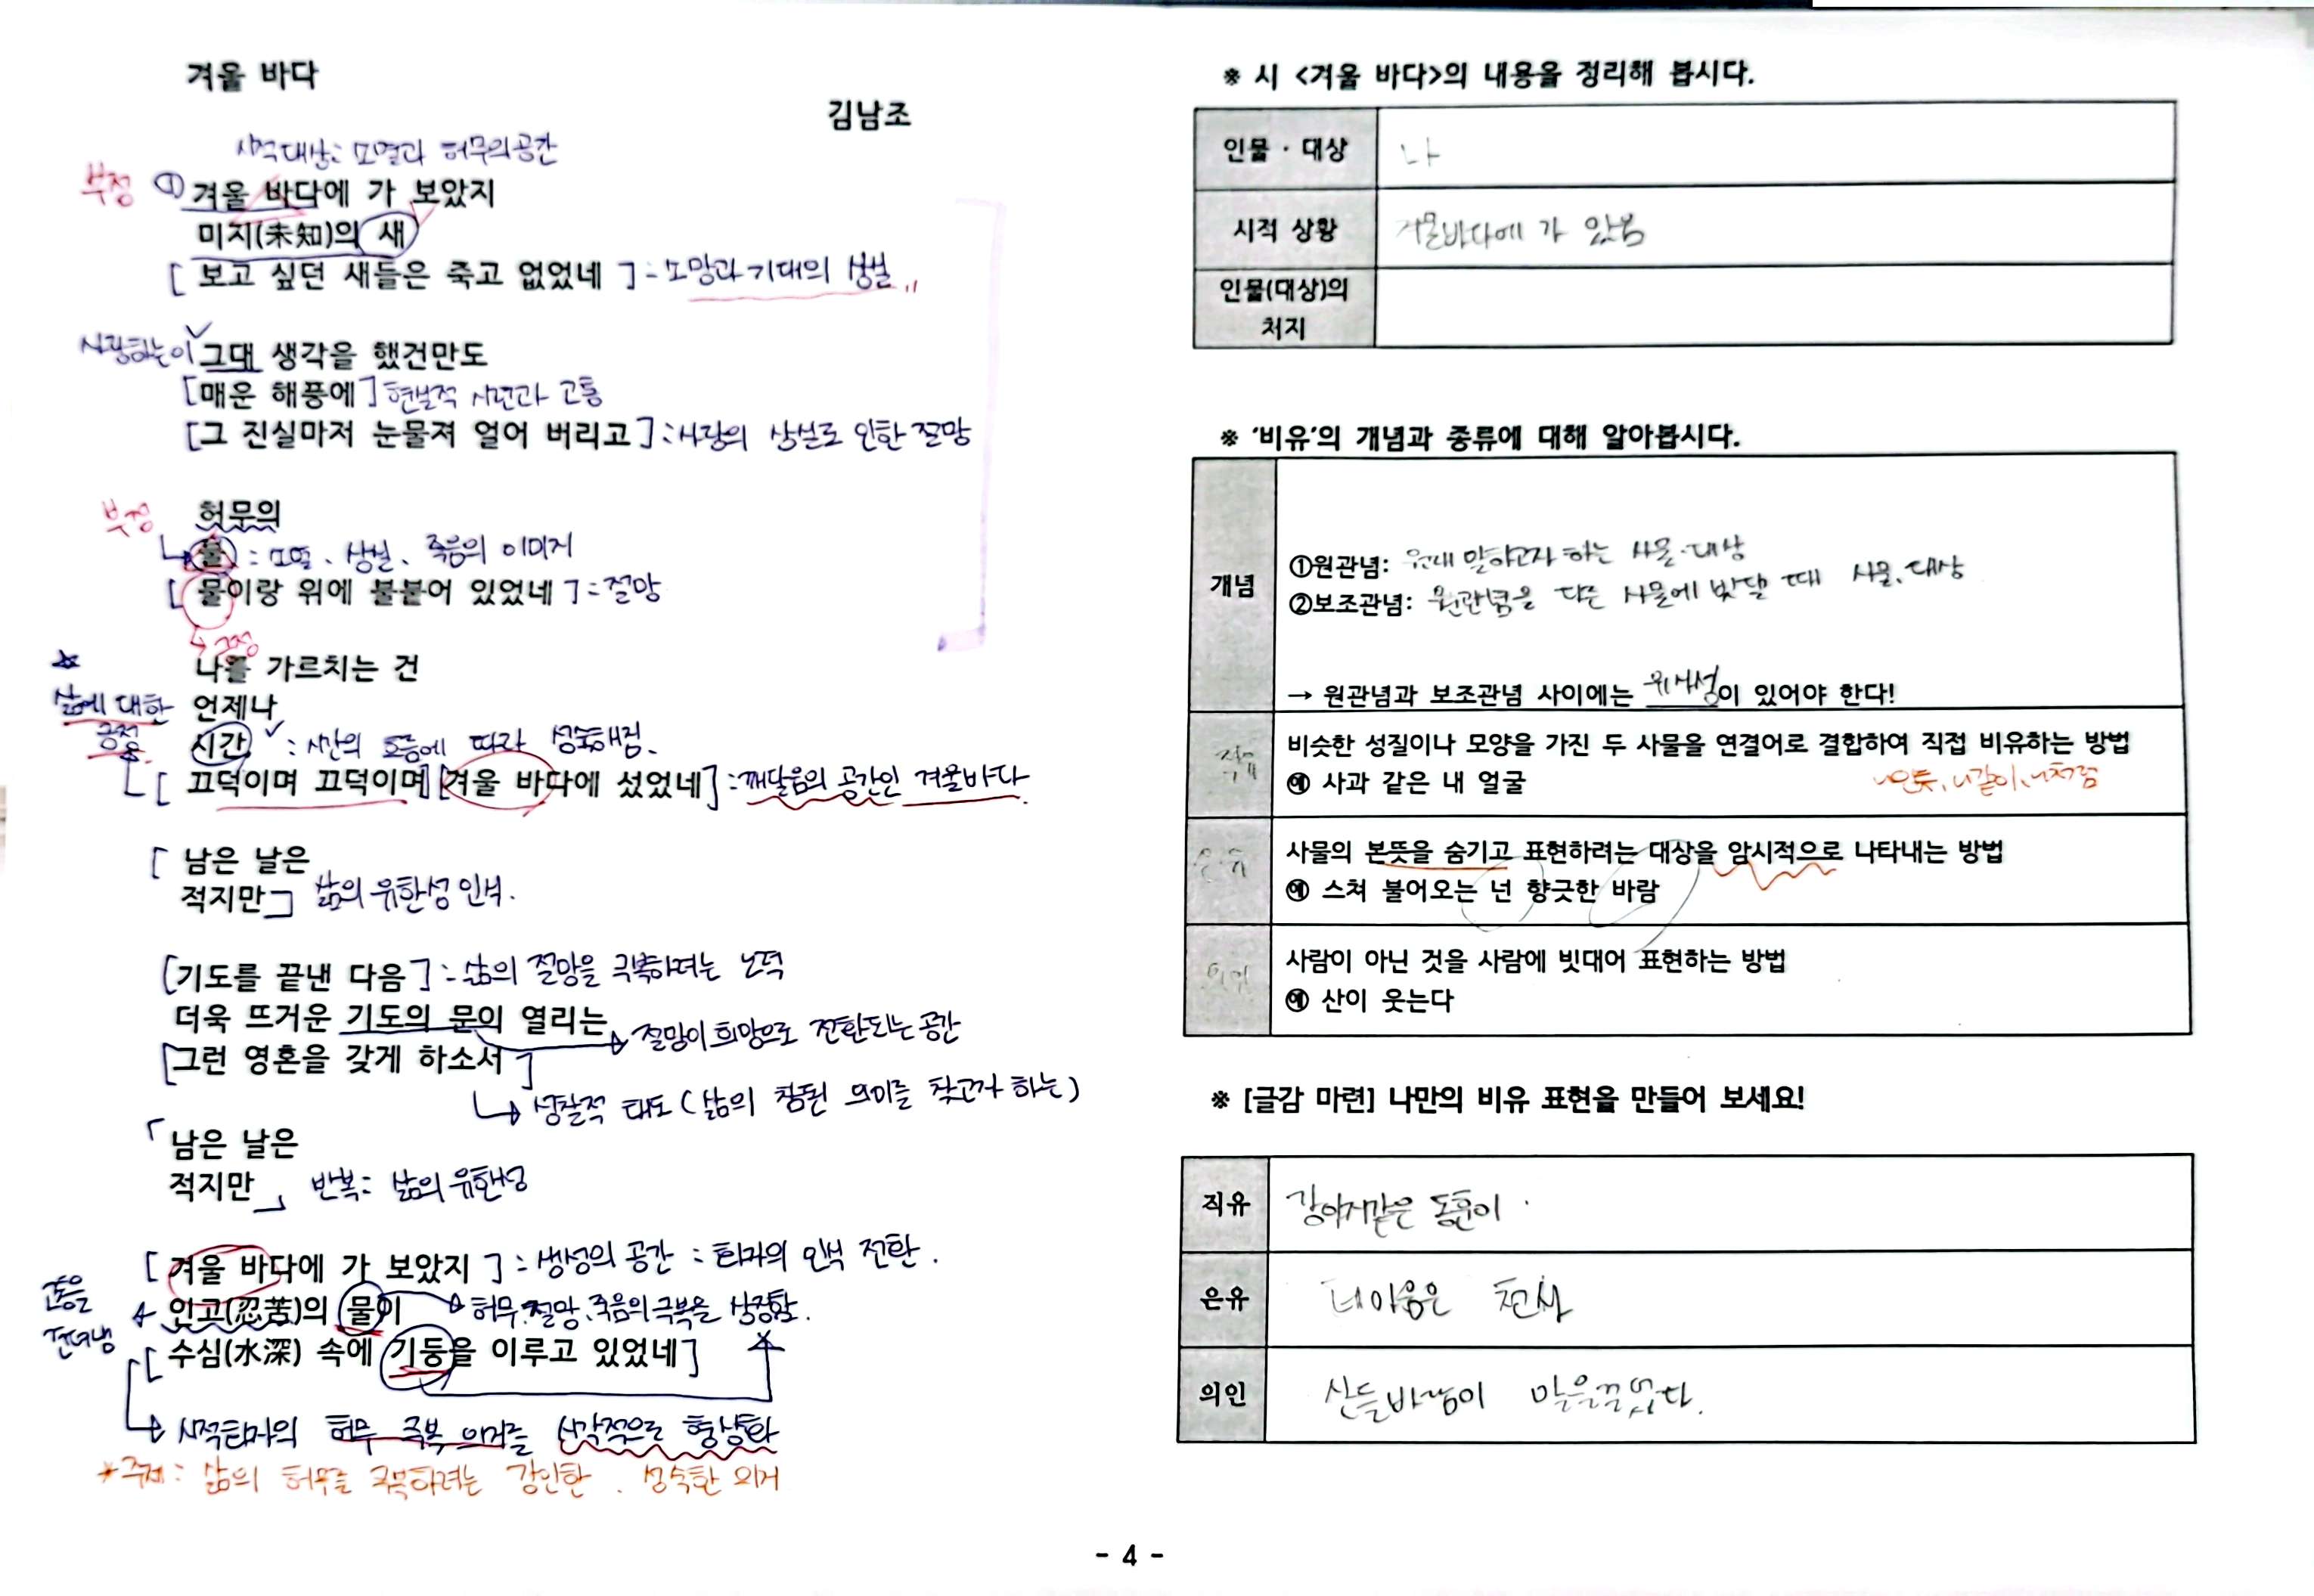 겨울 바다
김남조
시적대상: 소멸과 허무의 공간
부정 ① 겨울 바다에 가 보았지
미지(未知)의 새
[ 보고 싶던 새들은 죽고 없었네 ] : 소망과 기대의 상실
사랑하는 이 그대 생각을 했건만도
[매운 해풍에] 현실적 시련과 고통
[그 진실마저 눈물져 얼어 버리고] : 사랑의 상실로 인한 절망
부정 허무의
불 : 소멸, 상실, 죽음의 이미지
[ 물이랑 위에 불붙어 있었네 ] : 절망
긍정
나를 가르치는 건
삶에 대한 언제나
긍정 시간 : 시간의 흐름에 따라 성숙해짐.
[ 끄덕이며 끄덕이며] [겨울 바다에 섰었네] : 깨달음의 공간인 겨울바다
[ 남은 날은
적지만 ] 삶의 유한성 인식.
[기도를 끝낸 다음 ] : 삶의 절망을 극복하려는 노력
더욱 뜨거운 기도의 문이 열리는
절망이 희망으로 전환되는 공간
[그런 영혼을 갖게 하소서 ]
성찰적 태도 (삶의 참된 의미를 찾고자 하는)
「 남은 날은
적지만 」 반복: 삶의 유한성
[ 겨울 바다에 가 보았지 ] : 생성의 공간 : 화자의 인식 전환.
고통을 견뎌냄
인고(忍苦)의 물이 허무, 절망, 죽음의 극복을 상징함.
[ 수심(水深) 속에 기둥을 이루고 있었네 ]
시적화자의 허무 극복 의지를 시각적으로 형상화
*주제: 삶의 허무를 극복하려는 강인한, 성숙한 의지
※ 시 <겨울 바다>의 내용을 정리해 봅시다.
인물 · 대상 나
시적 상황 겨울바다에 가 있음
인물(대상)의
처지
※ '비유'의 개념과 종류에 대해 알아봅시다.
개념
①원관념: 원래 말하고자 하는 사물·대상
②보조관념: 원관념을 다른 사물에 빗댈 때 사물, 대상
→ 원관념과 보조관념 사이에는 유사성이 있어야 한다!
직유 비슷한 성질이나 모양을 가진 두 사물을 연결어로 결합하여 직접 비유하는 방법
예 사과 같은 내 얼굴
~인듯, ~같이, ~처럼
은유 사물의 본뜻을 숨기고 표현하려는 대상을 암시적으로 나타내는 방법
예 스쳐 불어오는 넌 향긋한 바람
의인 사람이 아닌 것을 사람에 빗대어 표현하는 방법
예 산이 웃는다
※ [글감 마련] 나만의 비유 표현을 만들어 보세요!
직유 강아지같은 동훈이.
은유 네 마음은 천사
의인 산들바람이
- 4 -